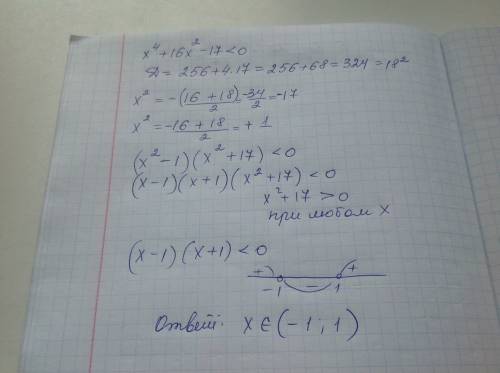 x⁴+16x²-17<0
D = 256+4.17=256+68=324=18²
x² = -(16+18)/2 = -34/2 = -17
x² = -16+18/2 = +1
(x²-1)(x²+17)<0
(x-1)(x+1)(x²+17)<0
x²+17>0
при любом x
(x-1)(x+1)<0
+ - +
-1 1
Ответ: x∈(-1;1)